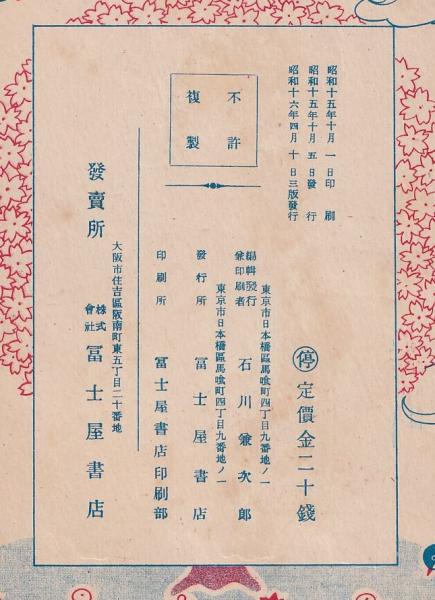 昭和十五年十月一日印刷
昭和十五年十月五日發行
昭和十六年四月十日三版發行
停 定價金二十錢
不許
複製
東京市日本橋區馬喰町四丁目九番地ノ一
編輯發行
兼印刷者 石川兼次郎
東京市日本橋區馬喰町四丁目九番地ノ一
發行所 冨士屋書店
印刷所 冨士屋書店印刷部
大阪市住吉區阪南町東五丁目二十番地
發賣所 株式會社 冨士屋書店